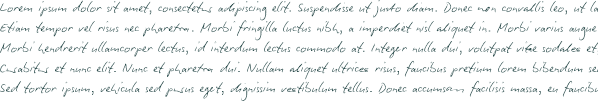 Lorem ipsum dolor sit amet, consectetur adipiscing elit. Suspendisse ut justo diam. Donec non convallis leo, ut la
Etiam tempor vel risus nec pharetra. Morbi fringilla luctus nibh, a imperdiet nisl aliquet in. Morbi varius augue
Morbi hendrerit ullamcorper lectus, id interdum lectus commodo at. Integer nulla dui, volutpat vitae sodales et
Curabitur et nunc elit. Nunc et pharetra dui. Nullam aliquet ultrices risus, faucibus pretium lorem bibendum se
Sed tortor ipsum, vehicula sed purus eget, dignissim vestibulum tellus. Donec accumsan facilisis massa, eu faucibu